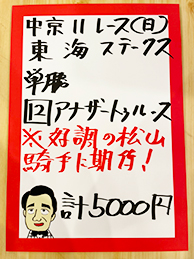 中京11レース(日)
東海ステークス
単勝
12 アナザートゥルース
※好調の松山
騎手に期待!
計5000円